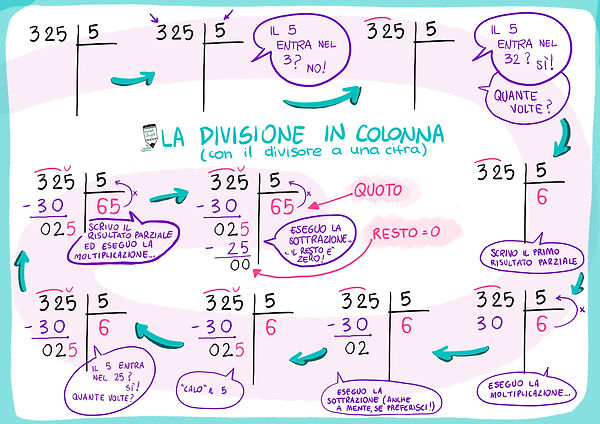 325 5
325 5
IL 5
ENTRA NEL
3? NO!
325 5
IL 5
ENTRA NEL
32? SÌ!
QUANTE
VOLTE?
LA DIVISIONE IN COLONNA
(con il divisore a una cifra)
325 5
6
SCRIVO IL PRIMO
RISULTATO PARZIALE
325 5
30 6
x
ESEGUO LA
MOLTIPLICAZIONE...
325 5
-30 6
02
ESEGUO LA
SOTTRAZIONE (ANCHE
A MENTE, SE PREFERISCI!)
325 5
-30 6
025
"CALO" IL 5
325 5
-30 6
025
IL 5 ENTRA
NEL 25?
SÌ!
QUANTE VOLTE?
325 5
-30 65
x
025
SCRIVO IL
RISULTATO PARZIALE
ED ESEGUO LA
MOLTIPLICAZIONE...
325 5
-30 65
x
025
-25
00
ESEGUO LA
SOTTRAZIONE...
IL RESTO È
ZERO!
QUOTO
RESTO=0